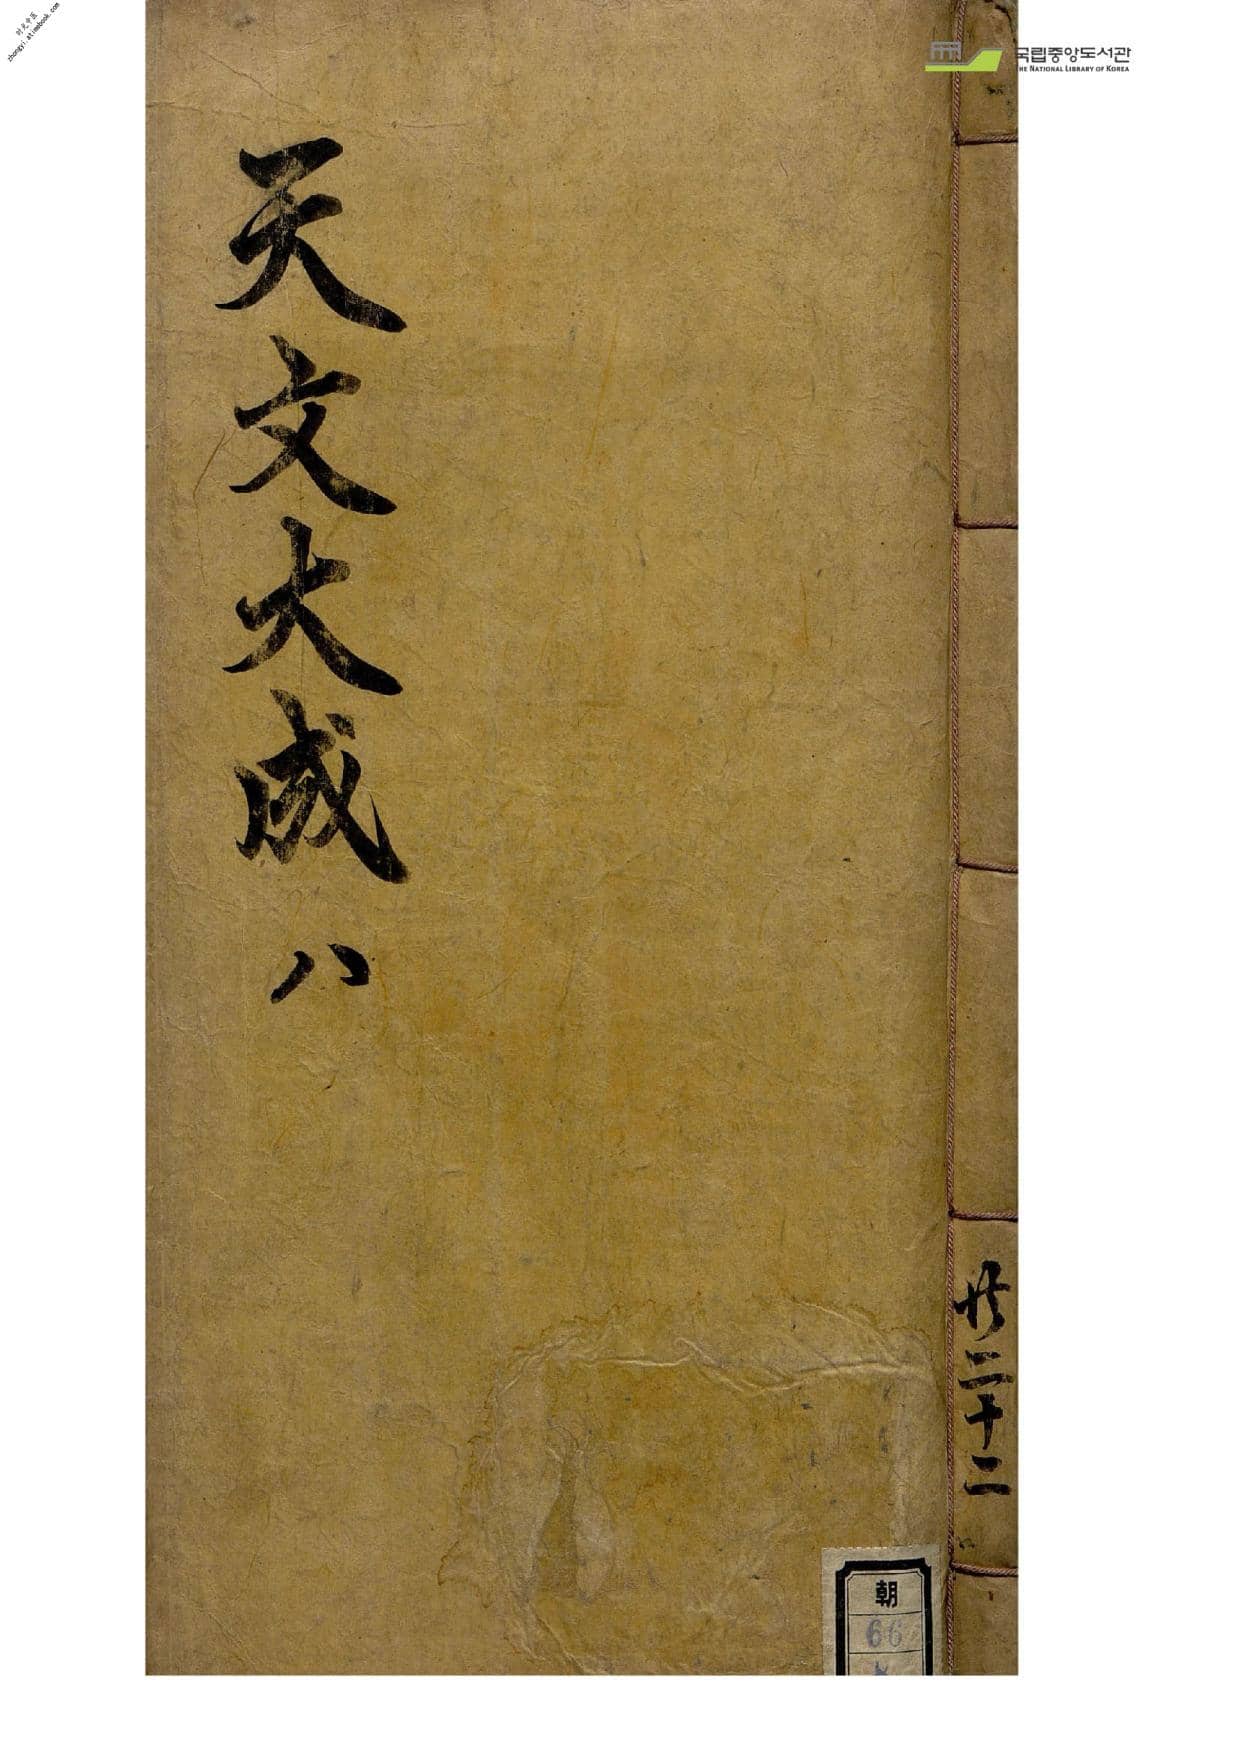 时光中医
zhongyi.atimebook.com
국립중앙도서관
THE NATIONAL LIBRARY OF KOREA
天文大成 八
共二十二
朝
66